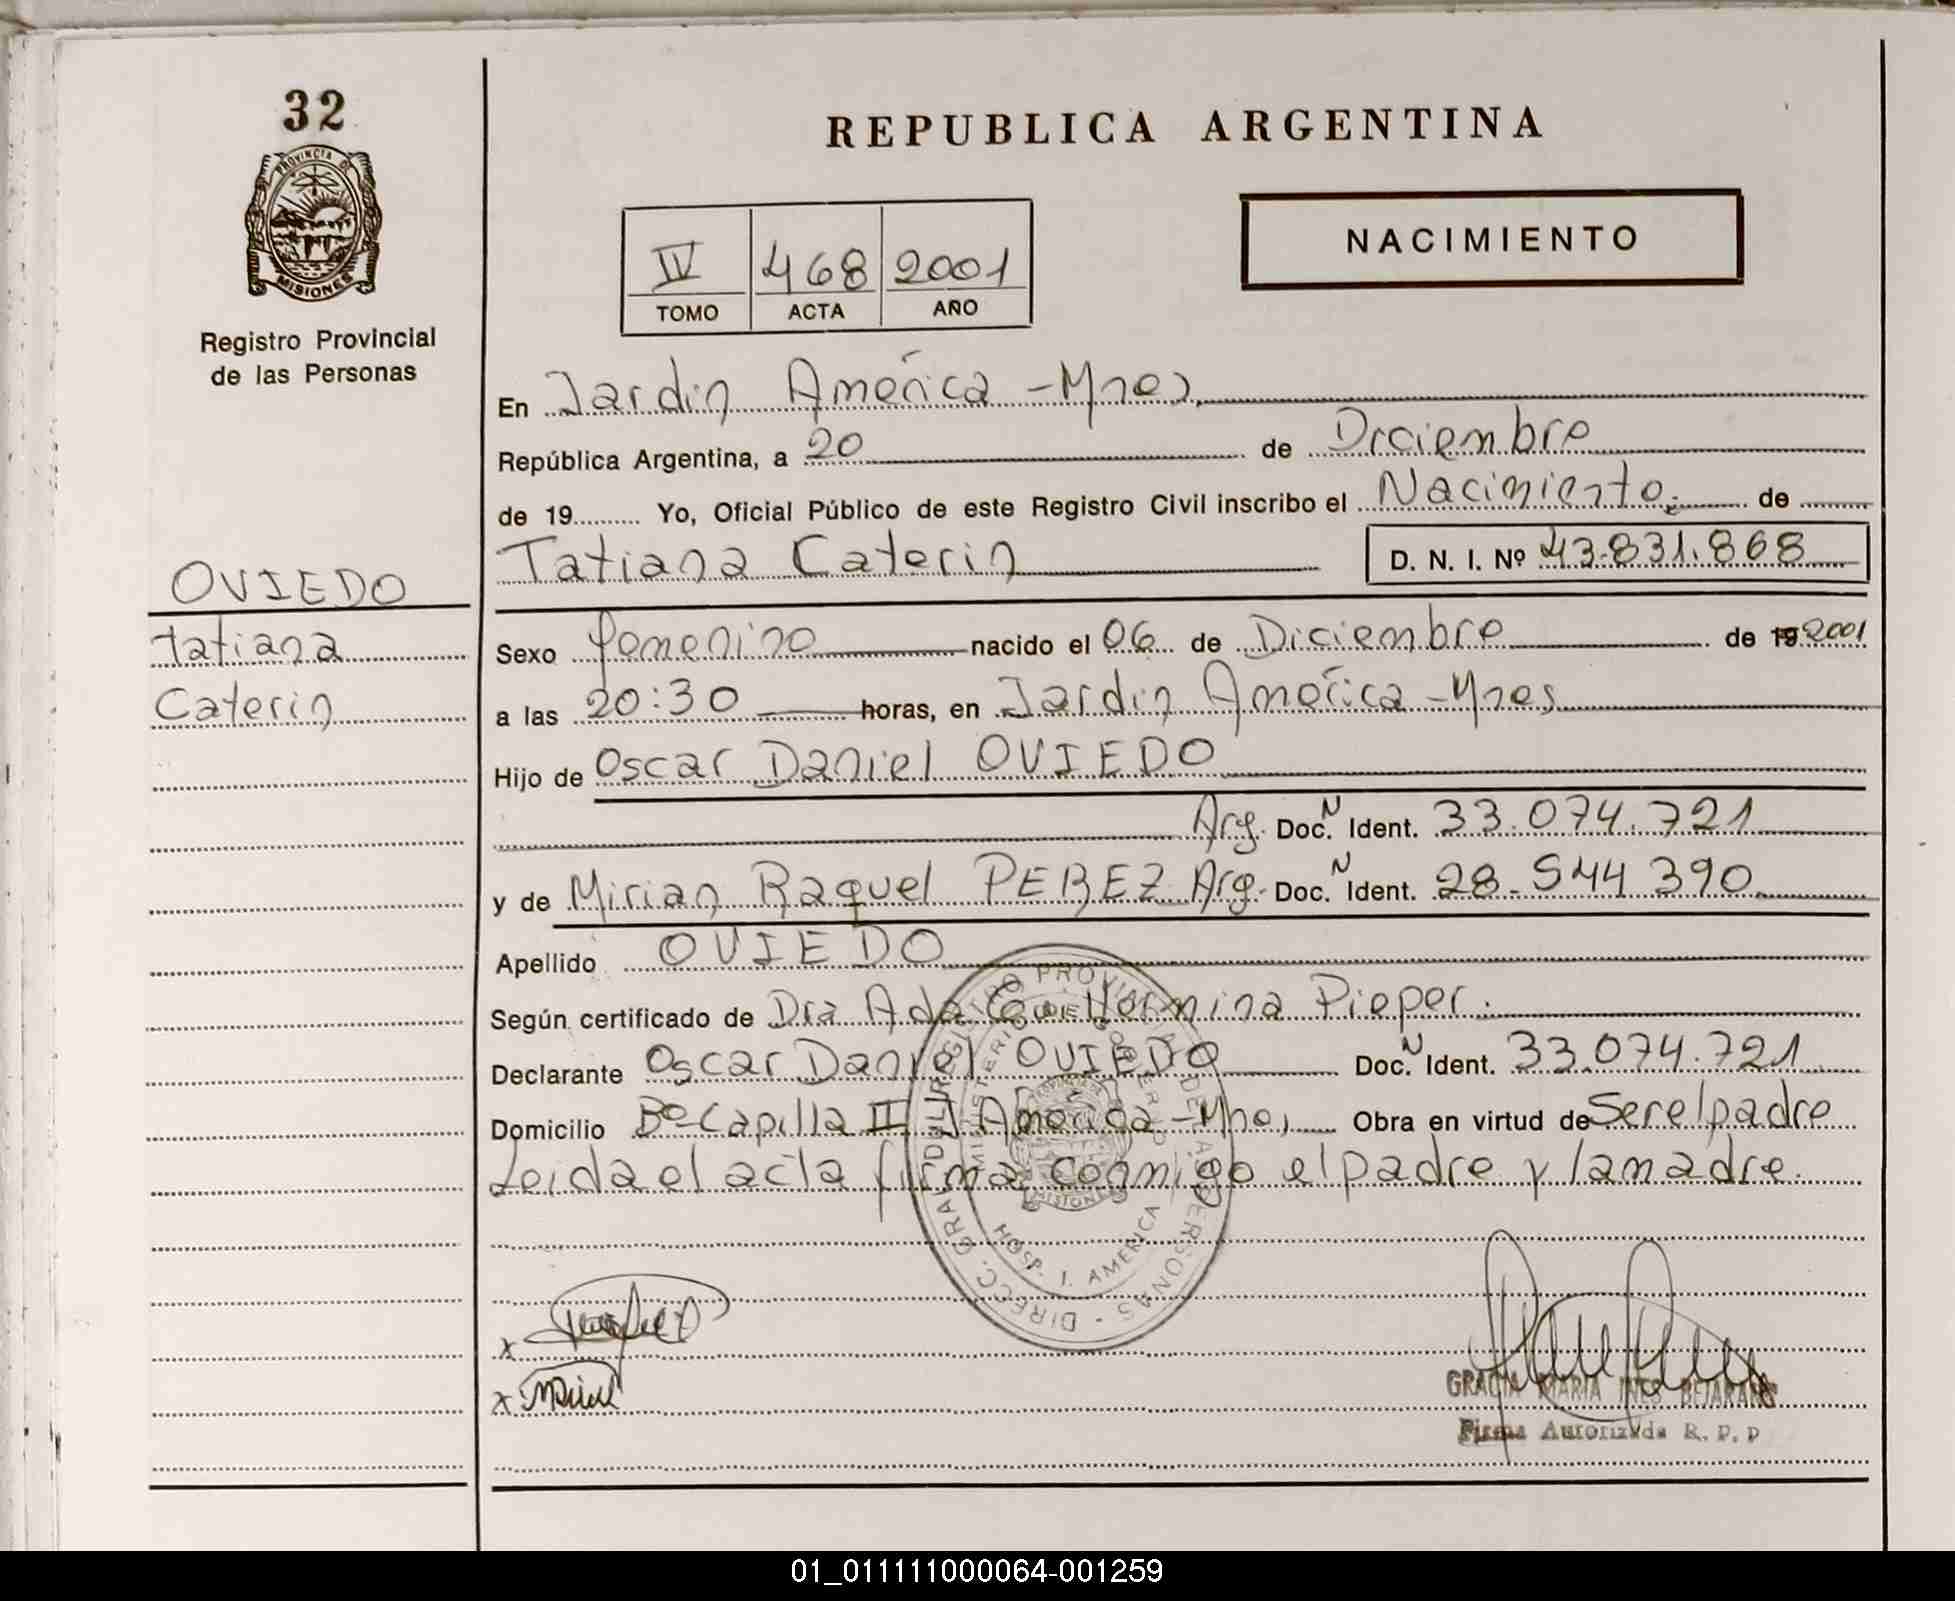 32
PROVINCIA DE
MISIONES
Registro Provincial
de las Personas
OVIEDO
Tatiana
Caterin
REPUBLICA ARGENTINA
NACIMIENTO
IV 468 2001
TOMO ACTA AÑO
En Jardin América - Mnes.
República Argentina, a 20 de Diciembre
de 19 Yo, Oficial Público de este Registro Civil inscribo el Nacimiento de
Tatiana Caterin D. N. I. Nº 43.831.868
Sexo femenino nacido el 06 de Diciembre de 19 2001
a las 20:30 horas, en Jardin América - Mnes
Hijo de Oscar Daniel OVIEDO
Arg. Doc. N Ident. 33.074.721
y de Mirian Raquel PEREZ Arg. Doc. N Ident. 28.544 390
Apellido OVIEDO
Según certificado de Dra Ada Hermina Pieper.
Declarante Oscar Daniel OVIEDO Doc. N Ident. 33.074.721
Domicilio Bº Capilla II J América - Mnes Obra en virtud de Ser el padre
Leida el acta firma conmigo el padre y la madre.
DIRECC. GRAL. DEL REGISTRO PROVINCIAL DE LAS PERSONAS
MINISTERIO DE GOBIERNO
MISIONES
HOSP. J. AMERICA
x
x
GRACIA MARIA INES BEJARANO
Firma Autorizada R. P. P
01_011111000064-001259